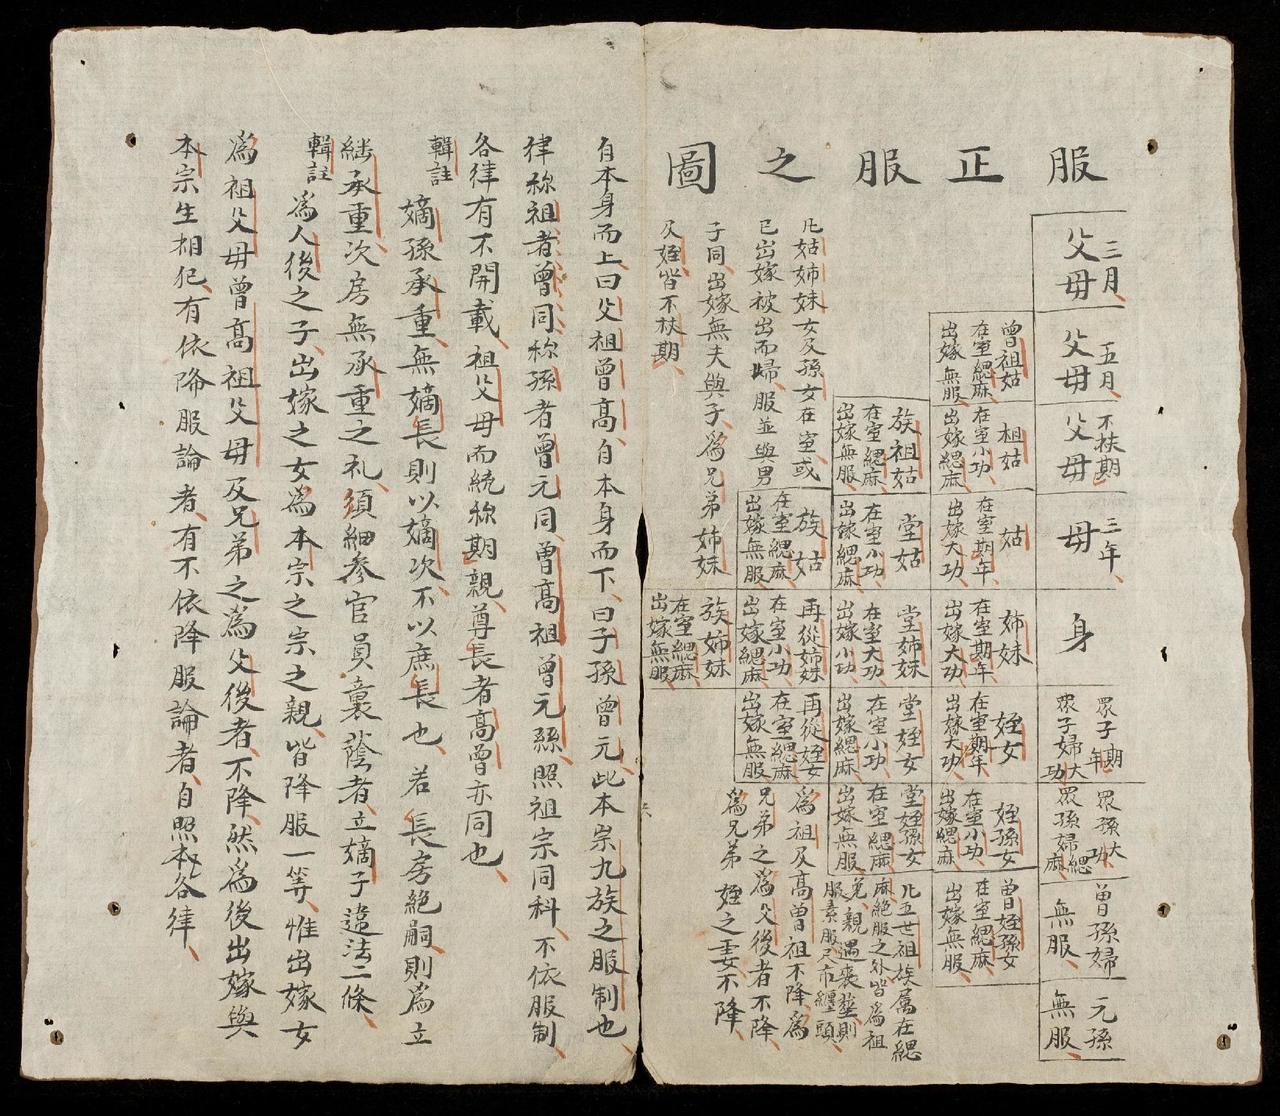 服正服之圖
三月、父母
五月、父母
不杖期、父母
三年、母
身
眾子期年、眾子婦大功
眾孫大功、眾孫婦緦麻
曾孫婦無服、
元孫無服、
曾祖姑在室緦麻出嫁無服、
祖姑在室小功、出嫁緦麻
姑在室期年出嫁大功
姊妹在室期年出嫁大功
姪女在室期年出嫁大功
姪孫女在室小功、出嫁緦麻
曾姪孫女在室緦麻出嫁無服
族祖姑在室緦麻出嫁無服
堂姑在室小功、出嫁緦麻
堂姊妹在室大功出嫁小功、
堂姪女在室小功、出嫁緦麻
堂姪孫女在室緦麻出嫁無服
族姑在室緦麻出嫁無服
再從姊妹在室小功出嫁緦麻
再從姪女在室緦麻出嫁無服
族姊妹在室緦麻出嫁無服
凡姑姉妹女及孫女在室或
已出嫁被出而歸、服並與男
子同、出嫁無夫與子、為兄弟姉妹
及姪皆不杖期、
凡五世祖族属在緦
麻絕服之外皆為袒
免、親遇喪塟則
服素服尺布纏頭、
為祖及高曾祖不降、為
兄弟之為父後者不降、
為兄弟姪之妻不降、
自本身而上曰父祖曾高、自本身而下、曰子孫曾元此本宗九族之服制也、
律称祖者曾同、称孫者曾元同、曾高祖曾元孫照祖宗同科、不依服制
各律有不開載祖父母而統称期親、尊長者高曾亦同也、
輯註嫡孫承重、無嫡長則以嫡次、不以庶長也、若長房絕嗣、則為立
継承重次房無承重之礼、須細參官員襲蔭者、立嫡子違法二條、
輯註為人後之子、出嫁之女為本宗之宗之親、皆降服一等、惟出嫁女
為祖父母曾高祖父母及兄弟之為父後者、不降、然為後出嫁與
本宗生相犯、有依降服論者、有不依降服論者、自照本各律、